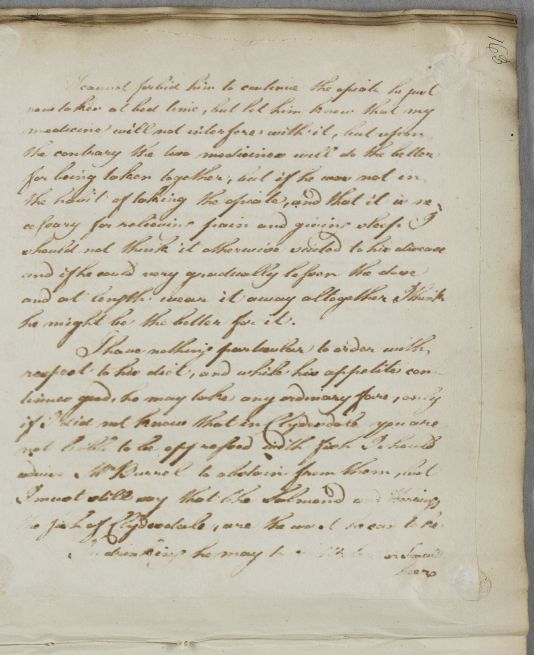 168
I cannot forbid him to continue the opiate he just
now takes at bed time, but let him know that my
medicine will not interfere with it, but upon
the contrary the two medicines will do the better
for being taken together, but if he was not in
the habit of taking the opiate, and that it is ne
cessary for relieving pain and giving sleep I
should not think it otherwise suited to his disease
and if he could very gradually lessen the dose
and at length wear it away altogether I think
he might be the better for it.
I have nothing particular to order with
respect to his diet, and while his appetite con
tinues good, he may take any ordinary fare, only
if I did not know that in Clydesdale you are
not liable to be oppressed with fish I should
advise Mr Burrel to abstain from them, but
I must still say that the Salmond and Herrings
the fish of Clydesdale, are the worst he can take
drinking he may
Beer